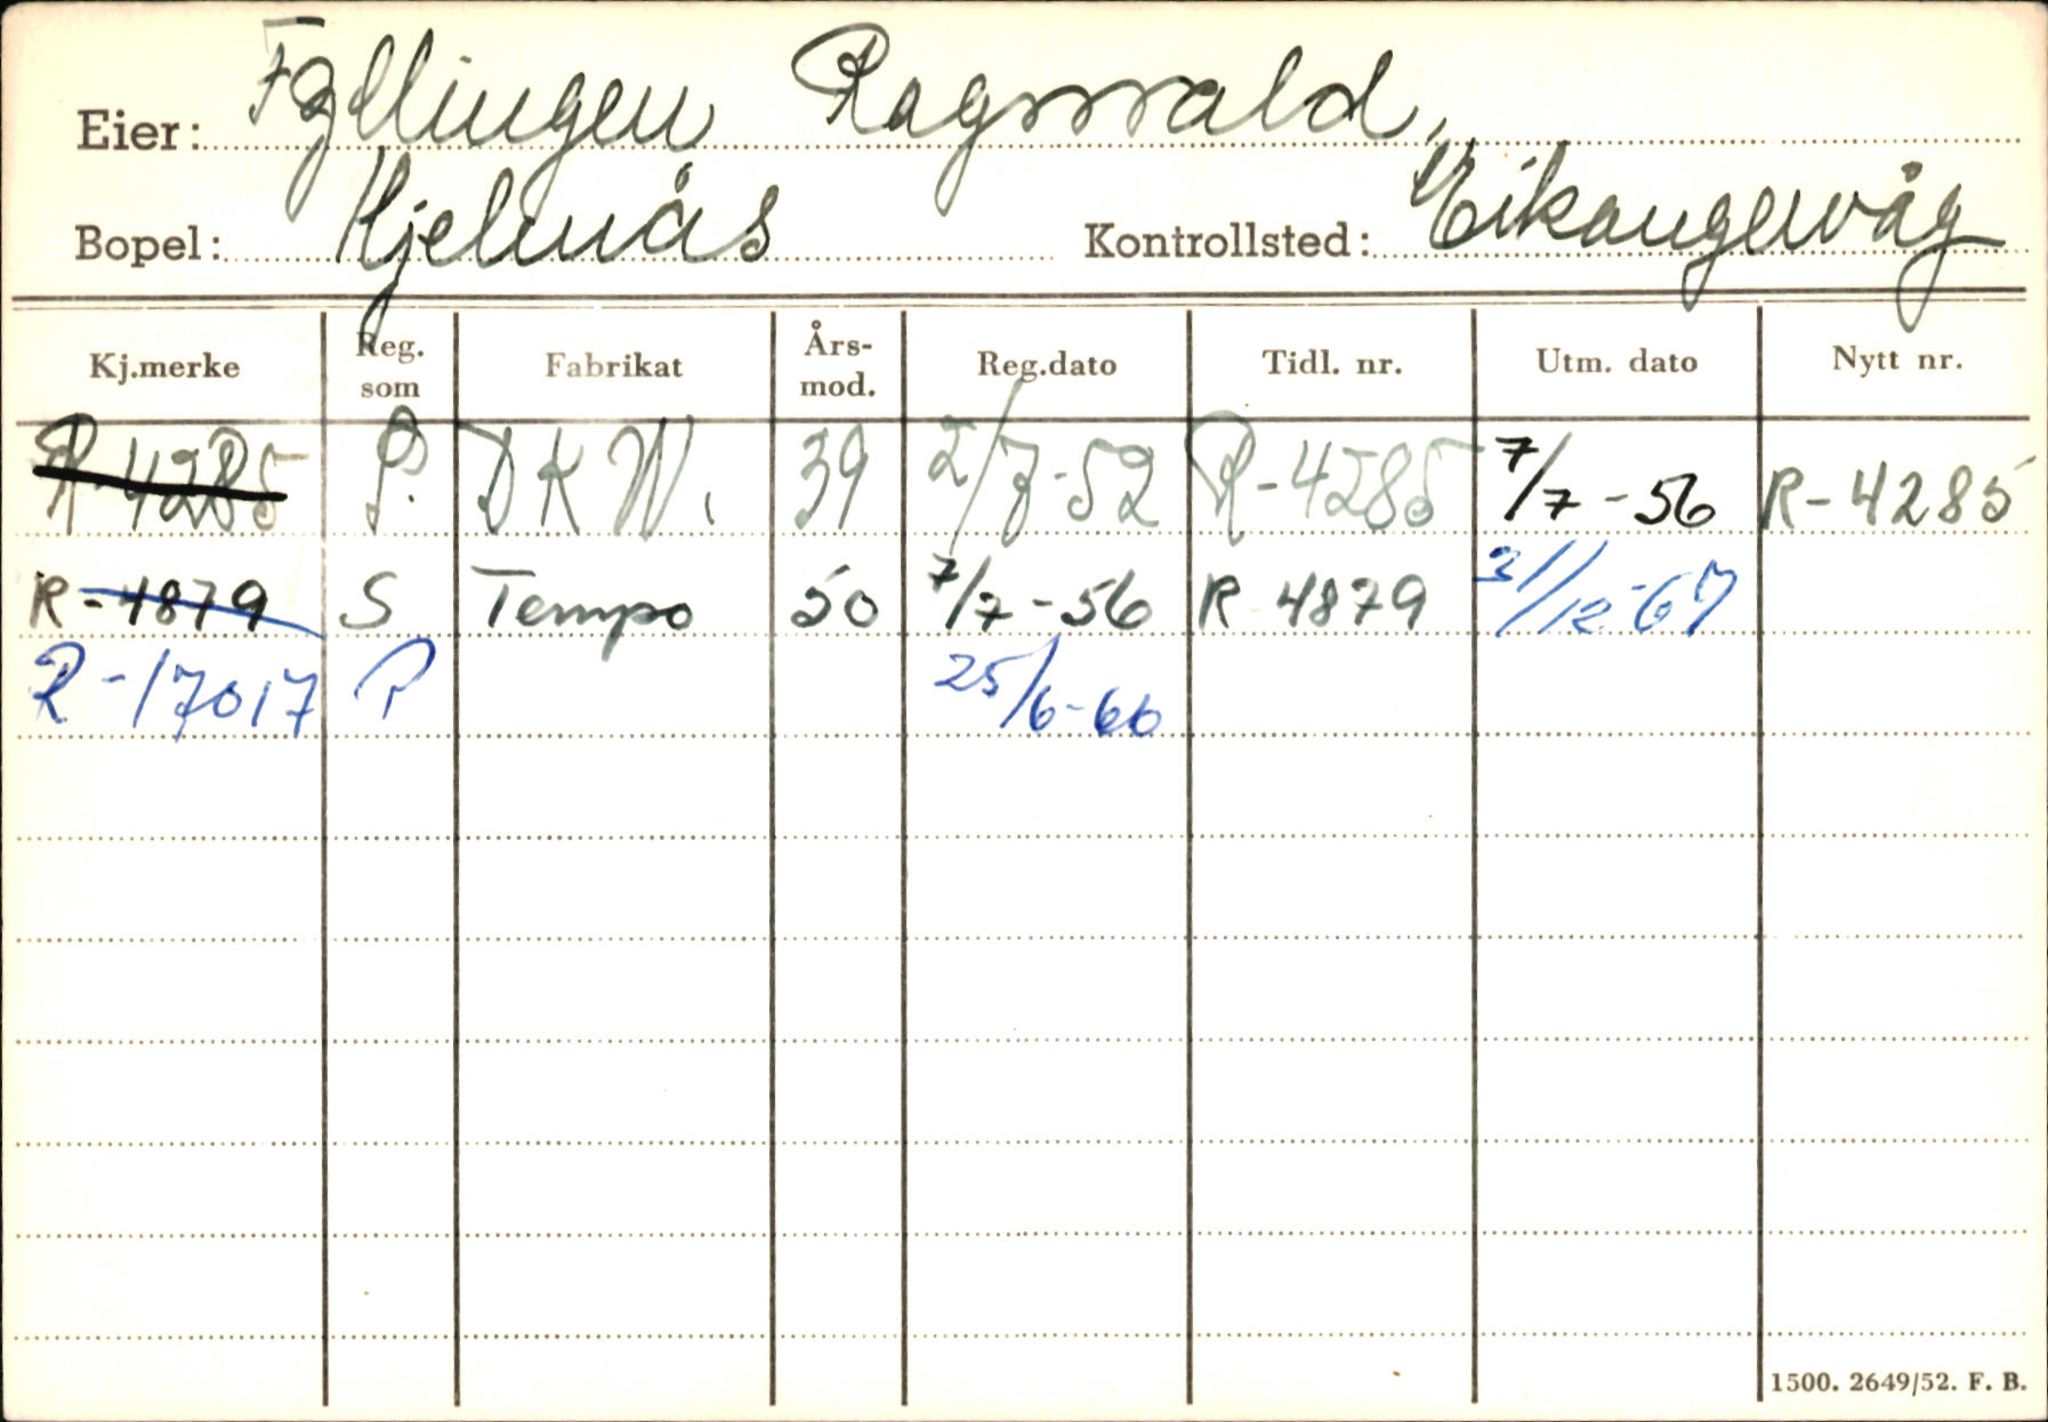 Eier: Fyllingen Ragnvald,
Bopel: Hjelmås Kontrollsted: Eikangervåg
Kj.merke Reg. som Fabrikat Års-mod. Reg.dato Tidl. nr. Utm. dato Nytt nr.
R-4285 P. DKW. 39 2/7-52 R-4285 7/7-56 R-4285
R-4879 S Tempo 50 7/7-56 R 4879 31/12-67
R-17017 P 25/6-66
1500. 2649/52. F. B.